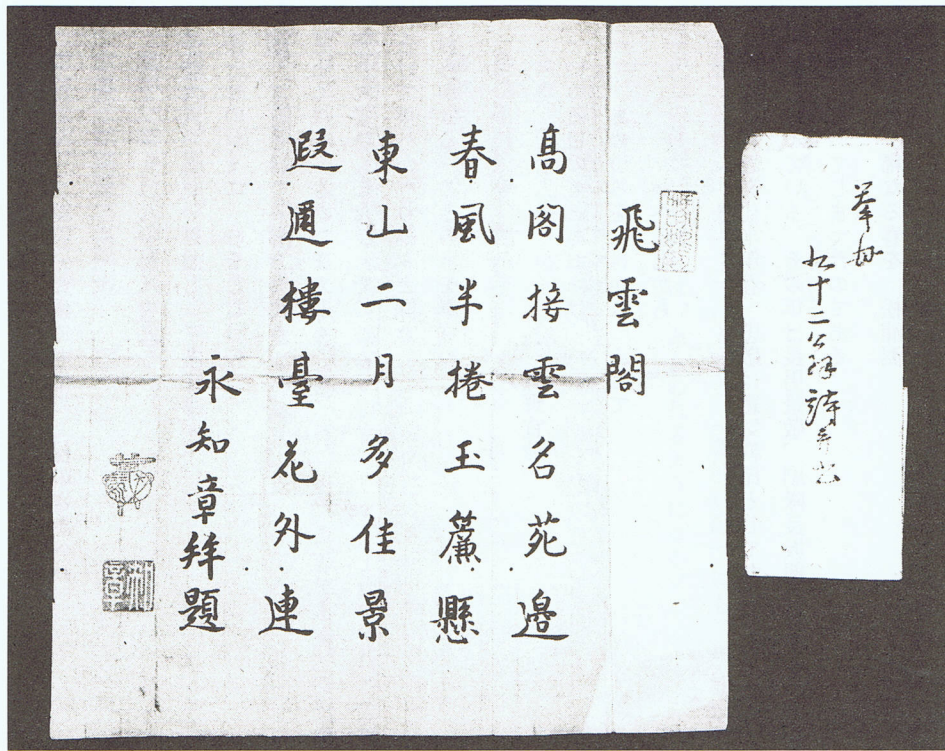 飛雲閣
高閣接雲名苑邊
春風半捲玉簾懸
東山二月多佳景
遐邇樓臺花外連
永知章拜題
知章